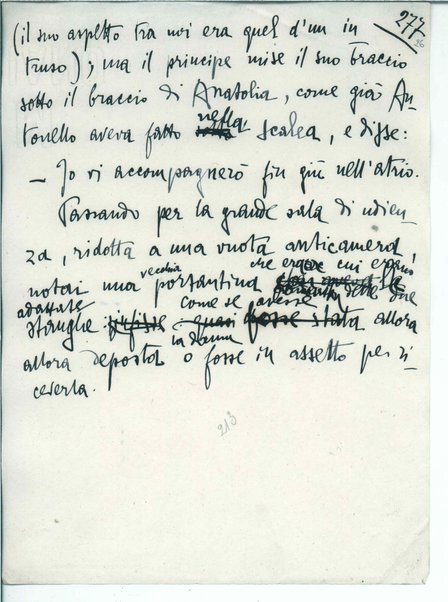 277
26
(il suo aspetto tra noi era quel d'un in
truso); ma il principe mise il suo braccio
sotto il braccio di Anatolia, come già An-
tonello aveva fatto nella scalea, e disse:
— Io vi accompagnerò fin giù nell'atrio.
Passando per la grande sala di udien
za, ridotta a una vuota anticamera,
notai una vecchia portantina a cui erano
adattate delle due
stanghe infisse quasi come se avesse fosse stata allora
allora deposta la dama o fosse in assetto per ri-
ceverla.
213